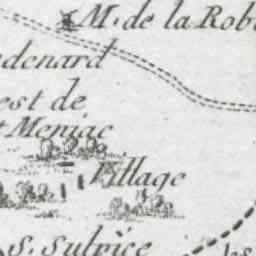 M. de la Rob
denard
est de
t Meniac
Village
S. Sulpice